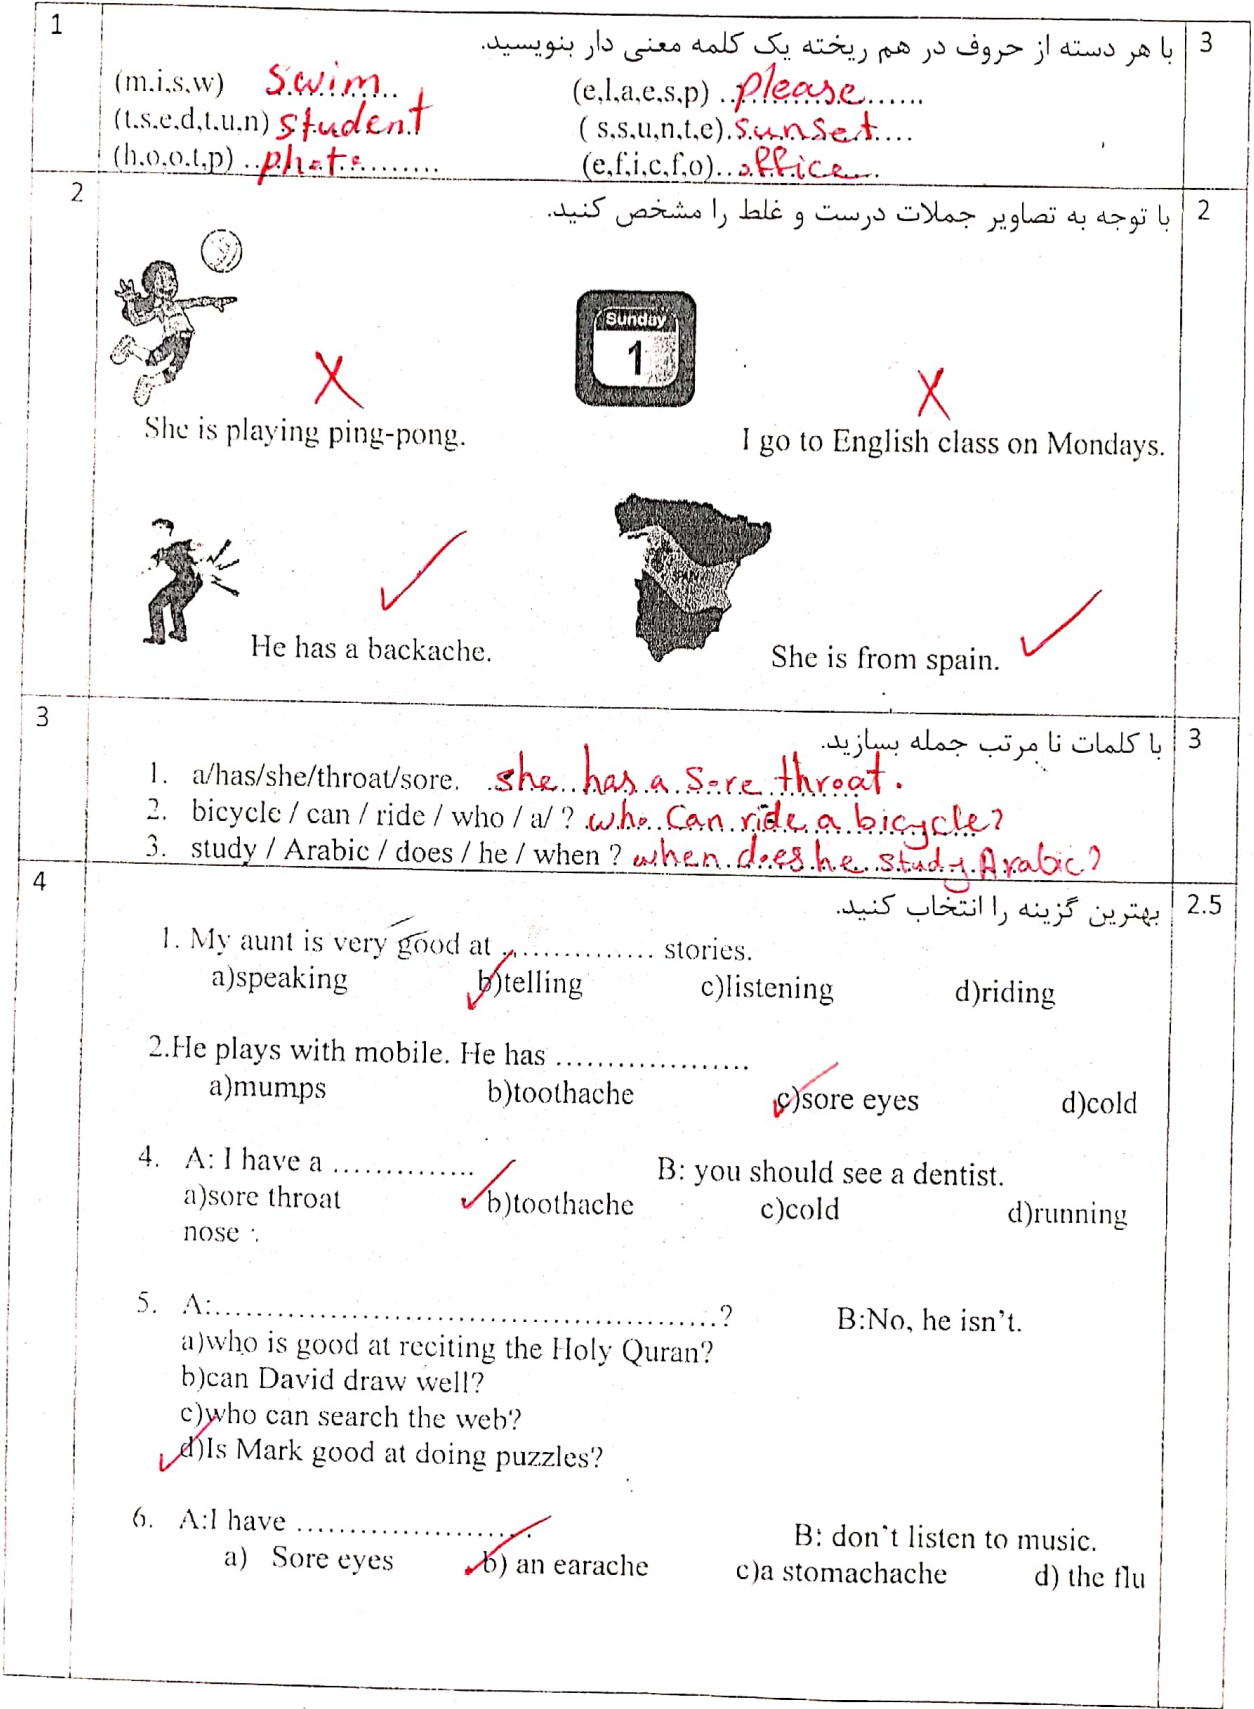 1
با هر دسته از حروف در هم ریخته یک کلمه معنی دار بنویسید. 3
(m.i.s.w) swim (e.l.a.e.s.p) please
(t.s.e.d.t.u.n) student ( s.s.u.n.t.e) sunset
(h.o.o.t.p) photo (e.f.i.c.f.o) office
2
با توجه به تصاویر جملات درست و غلط را مشخص کنید. 2
Sunday
1
X X
She is playing ping-pong. I go to English class on Mondays.
SPAIN
✓ ✓
He has a backache. She is from spain.
3
با کلمات نا مرتب جمله بسازید. 3
1. a/has/she/throat/sore. she has a sore throat.
2. bicycle / can / ride / who / a/ ? who can ride a bicycle?
3. study / Arabic / does / he / when ? when does he study Arabic?
4
بهترین گزینه را انتخاب کنید. 2.5
1. My aunt is very good at .............. stories.
a)speaking b)telling c)listening d)riding
2.He plays with mobile. He has ...................
a)mumps b)toothache c)sore eyes d)cold
4. A: I have a .............. B: you should see a dentist.
a)sore throat b)toothache c)cold d)running
nose
5. A:................................................? B:No, he isn't.
a)who is good at reciting the Holy Quran?
b)can David draw well?
c)who can search the web?
d)Is Mark good at doing puzzles?
6. A:I have ....................... B: don't listen to music.
a) Sore eyes b) an earache c)a stomachache d) the flu